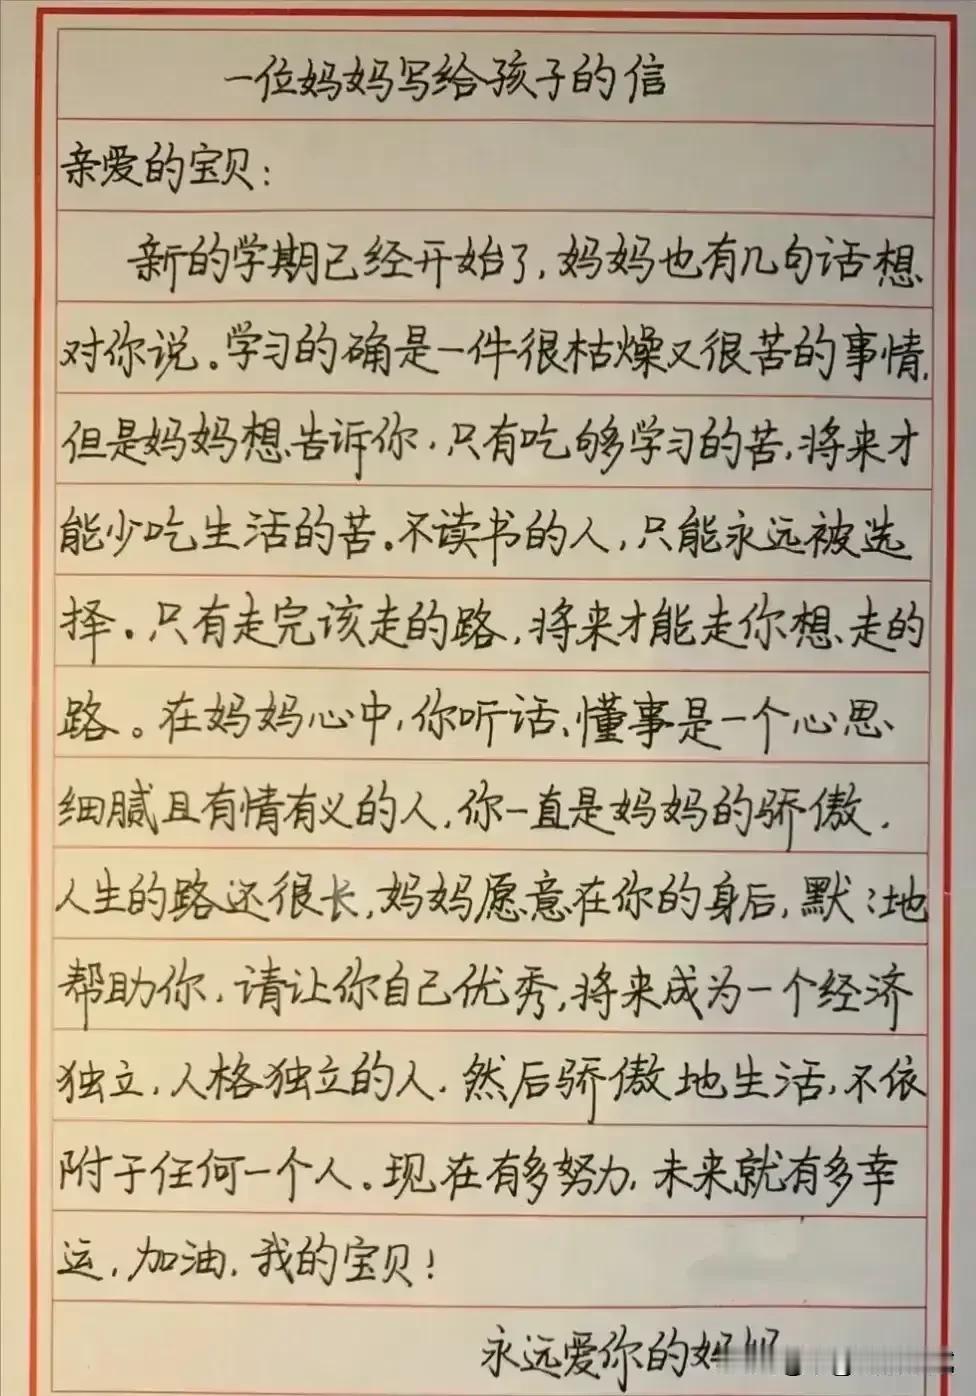 一位妈妈写给孩子的信
亲爱的宝贝：
新的学期已经开始了，妈妈也有几句话想
对你说。学习的确是一件很枯燥又很苦的事情，
但是妈妈想告诉你，只有吃够学习的苦，将来才
能少吃生活的苦。不读书的人，只能永远被选
择。只有走完该走的路，将来才能走你想走的
路。在妈妈心中，你听话、懂事是一个心思
细腻且有情有义的人，你一直是妈妈的骄傲，
人生的路还很长，妈妈愿意在你的身后，默㆑地
帮助你，请让你自己优秀，将来成为一个经济
独立，人格独立的人，然后骄傲地生活，不依
附于任何一个人。现在有多努力，未来就有多幸
运，加油，我的宝贝！
永远爱你的妈妈